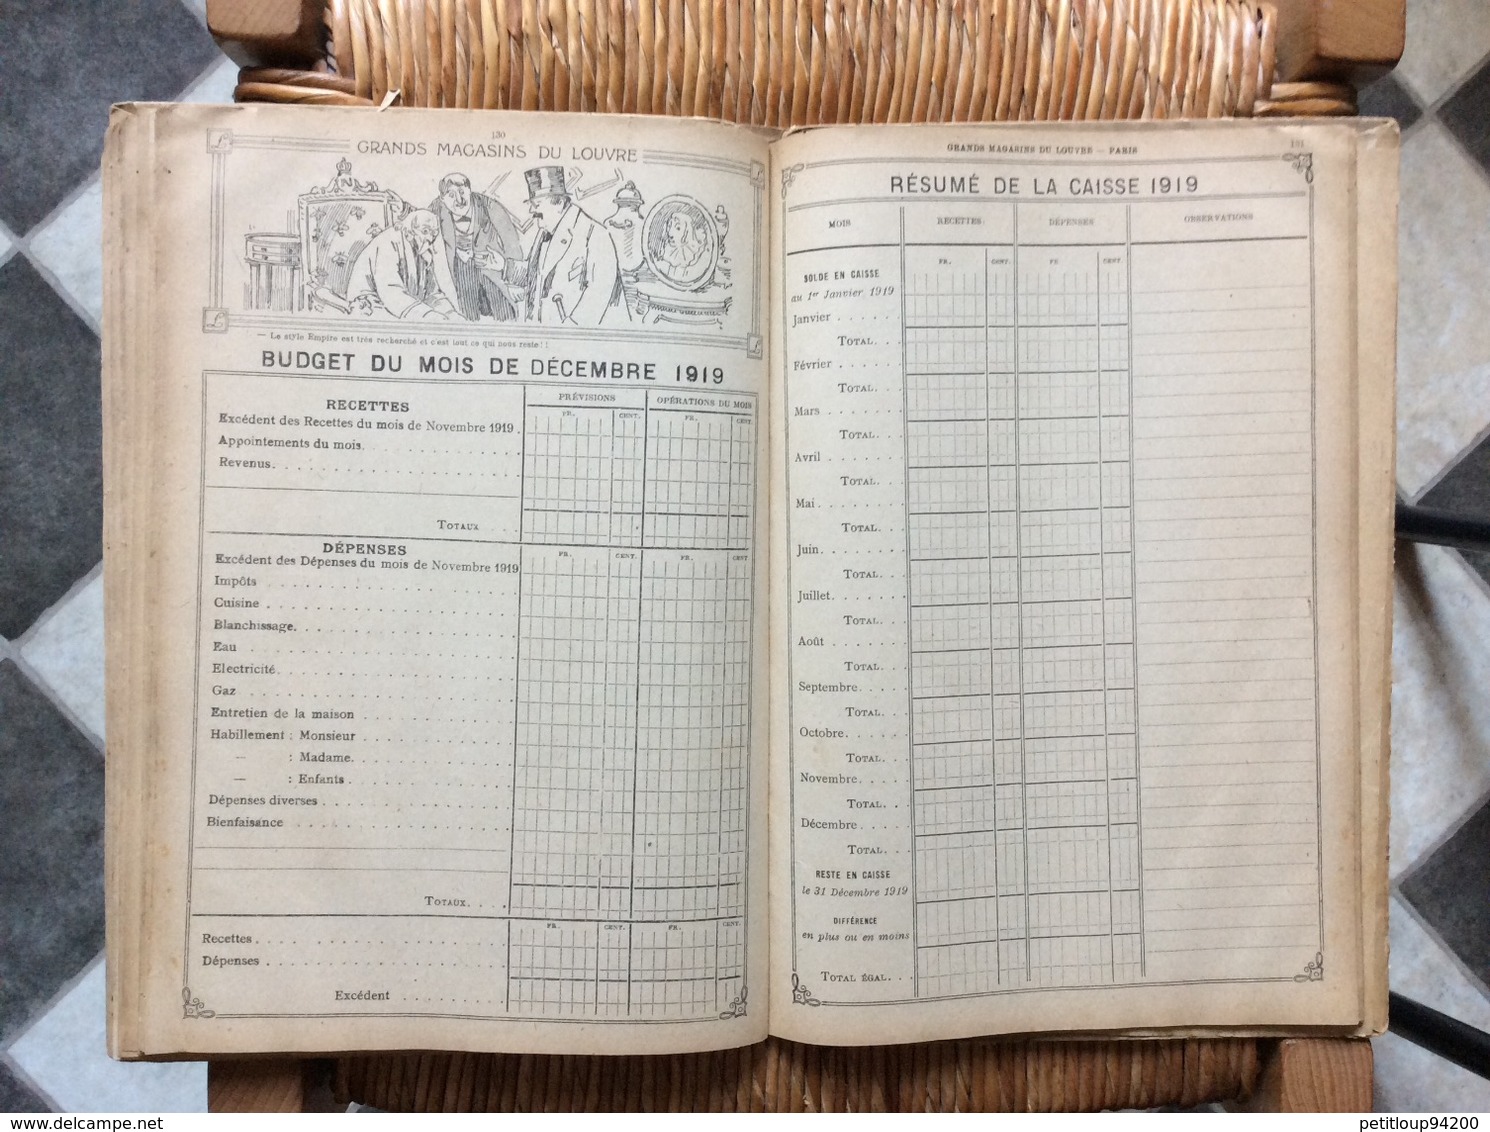 130
GRANDS MAGASINS DU LOUVRE
— Le style Empire est très recherché et c'est tout ce qui nous reste!!
BUDGET DU MOIS DE DÉCEMBRE 1919
PRÉVISIONS
OPÉRATIONS DU MOIS
RECETTES
FR. CENT. FR. CENT.
Excédent des Recettes du mois de Novembre 1919 .
Appointements du mois. . . . . . . . . . . .
Revenus. . . . . . . . . . . . . . . . . . .
TOTAUX . . .
DÉPENSES
FR. CENT. FR. CENT.
Excédent des Dépenses du mois de Novembre 1919
Impôts . . . . . . . . . . . . . . . . . .
Cuisine . . . . . . . . . . . . . . . . . .
Blanchissage. . . . . . . . . . . . . . . .
Eau . . . . . . . . . . . . . . . . . . . .
Electricité. . . . . . . . . . . . . . . . .
Gaz . . . . . . . . . . . . . . . . . . . .
Entretien de la maison . . . . . . . . . . .
Habillement : Monsieur . . . . . . . . . . .
— : Madame. . . . . . . . . . . .
— : Enfants . . . . . . . . . . . .
Dépenses diverses . . . . . . . . . . . . .
Bienfaisance . . . . . . . . . . . . . . .
TOTAUX. . . .
FR. CENT. FR. CENT.
Recettes . . . . . . . . . . . . . . . . .
Dépenses . . . . . . . . . . . . . . . . .
Excédent . . . . . . . .
GRANDS MAGASINS DU LOUVRE — PARIS
131
RÉSUMÉ DE LA CAISSE 1919
MOIS RECETTES DÉPENSES OBSERVATIONS
FR. CENT. FR. CENT
SOLDE EN CAISSE
au 1er Janvier 1919
Janvier . . . . . .
TOTAL. . .
Février . . . . . .
TOTAL. . .
Mars . . . . . . .
TOTAL. . .
Avril . . . . . . .
TOTAL. . .
Mai . . . . . . . .
TOTAL. . .
Juin. . . . . . . .
TOTAL. . .
Juillet. . . . . . .
TOTAL. . .
Août . . . . . . .
TOTAL. . .
Septembre. . . . .
TOTAL. . .
Octobre. . . . . .
TOTAL. . .
Novembre. . . . .
TOTAL. . .
Décembre. . . . .
TOTAL. . .
RESTE EN CAISSE
le 31 Décembre 1919
DIFFÉRENCE
en plus ou en moins
TOTAL ÉGAL. . .
www.delcampe.net
petitloup94200